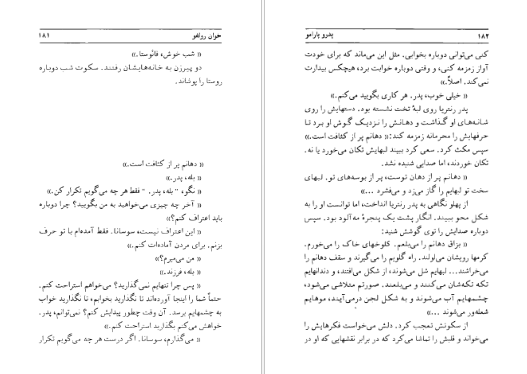 جوان رولفو
۱۸۱
« شب خوش، فائوستا.»
دو پیرزن به خانه‌هایشان رفتند. سکوت شب دوباره
روستا را پوشاند.
« دهانم پر از کثافت است.»
« بله، پدر.»
« نگو "بله، پدر." فقط هر چه می‌گویم تکرار کن.»
« آخر چه چیزی می‌خواهید به من بگویید؟ چرا دوباره
باید اعتراف کنم؟»
« این اعتراف نیست، سوسانا. فقط آمده‌ام با تو حرف
بزنم. برای مردن آماده‌ات کنم.»
« من می‌میرم؟»
« بله، فرزند.»
« پس چرا تنهایم نمی‌گذارید؟ می‌خواهم استراحت کنم.
حتماً شما را اینجا آورده‌اند تا نگذارید بخوابم، تا نگذارید خواب
به چشمهایم برسد. آن وقت چطور پیدایش کنم؟ نمی‌توانم، پدر.
خواهش می‌کنم بگذارید استراحت کنم.»
« می‌گذارم، سوسانا. اگر درست هر چه می‌گویم تکرار
پدرو پارامو
۱۸۲
کنی می‌توانی دوباره بخوابی. مثل این می‌ماند که برای خودت
آواز زمزمه کنی، و وقتی دوباره خوابت برد، هیچکس بیدارت
نمی‌کند. اصلاً.»
« خیلی خوب، پدر. هر کاری بگویید می‌کنم.»
پدر رنتریا روی لبهٔ تخت نشسته بود. دستهایش را روی
شانه‌های او گذاشت و دهانش را نزدیک گوش او برد تا
حرفهایش را محرمانه زمزمه کند:« دهانم پر از کثافت است.»
سپس مکث کرد. سعی کرد ببیند لبهایش تکان می‌خورد یا نه.
تکان خوردند، اما صدایی شنیده نشد.
« دهانم پر از دهان توست، پر از بوسه‌های تو. لبهای
سخت تو لبهایم را گاز می‌زد و می‌فشرد ...»
از پهلو نگاهی به پدر رنتریا انداخت، اما توانست او را به
شکل محو ببیند. انگار پشت یک پنجرهٔ مه‌آلود بود. سپس
دوباره صدایش را توی گوشش شنید:
« بزاق دهانم را می‌بلعم. کلوخهای خاک را می‌خورم.
کرمها رویشان می‌لولند. راه گلویم را می‌گیرند و سقف دهانم را
می‌خراشند... لبهایم شل می‌شوند، از شکل می‌افتند، و دندانهایم
تکه تکه‌شان می‌کنند و می‌بلعند. صورتم متلاشی می‌شود،
چشمهایم آب می‌شوند و به شکل لجن درمی‌آیند، موهایم
شعله‌ور می‌شوند ...»
از سکونش تعجب کرد. دلش می‌خواست فکرهایش را
می‌خواند و قلبش را تماشا می‌کرد که در برابر نقشهایی که او در